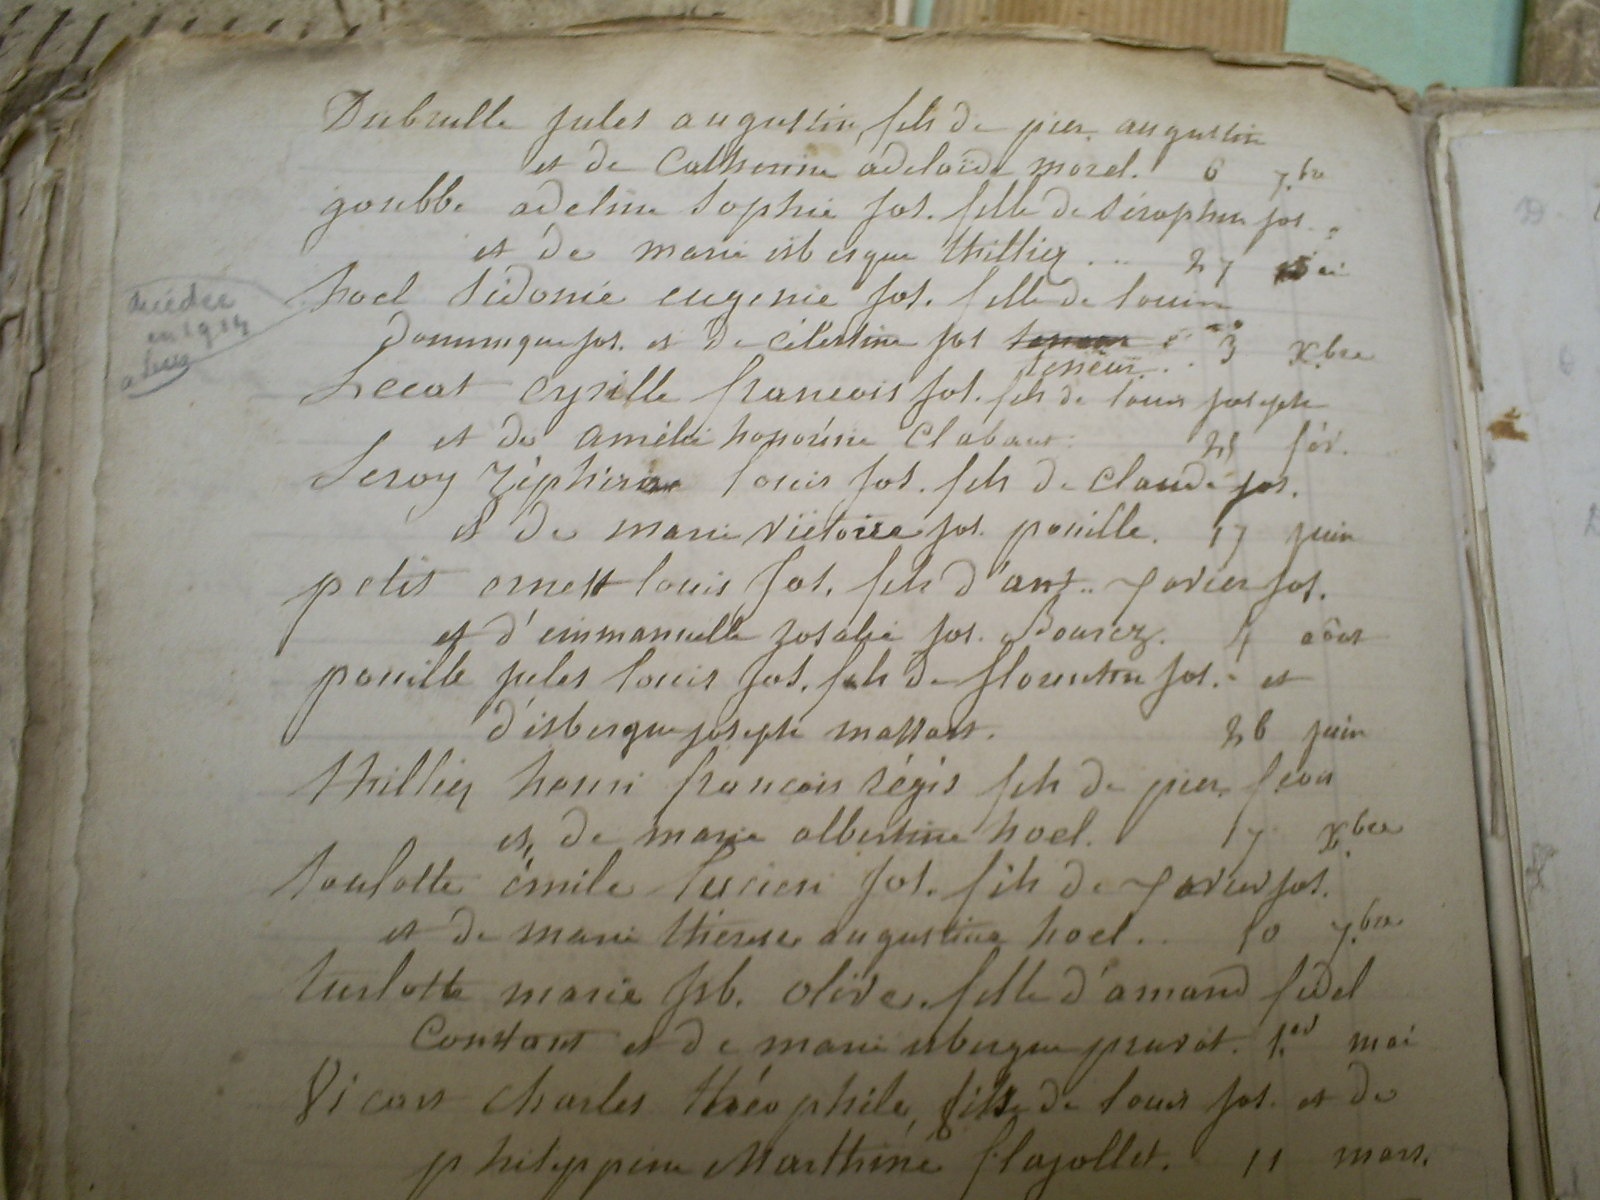 Dubrulle jules augustin, fils de pier. augustin
et de Catherine adelaïde morel. 6 7.bre
goubbe adeline Sophie jos. fille de Séraphin jos.
et de marie isbergue thilliez .. 27
hoel Sidonie eugenie jos. fille de louis
dominique jos. et de célestine jos tesseur .. 3 X.bre
décédée
en
a
Lecat Cyrille francois jos. fils de louis joseph
et de amélie honorine Clabaut. fév.
Leroy Zéphirin louis jos. fils de Claude jos.
et de marie Victoire jos. pouille. 17 juin
petit ernest louis jos. fils d'ant.. xavier jos.
et d'emmanuelle rosalie jos. Boursez. août
pouille jules louis jos. fils de florentin jos. et
d'isbergue joseph massart. 26 juin
thilliez henri francois régis fils de pier. fcois
et de marie albertine hoel. 17 X.bre
toulotte émile lucien jos. fils de xavier jos.
et de marie thérese augustine hoel.. 10 7.bre
turlotte marie jsb. olive. fille d'amand fidel
Constant et de marie isbergue pruvot. 1.er mai
Vicart charles théophile, fils de louis jos. et de
philippine Marthine flajollet. 11 mars.